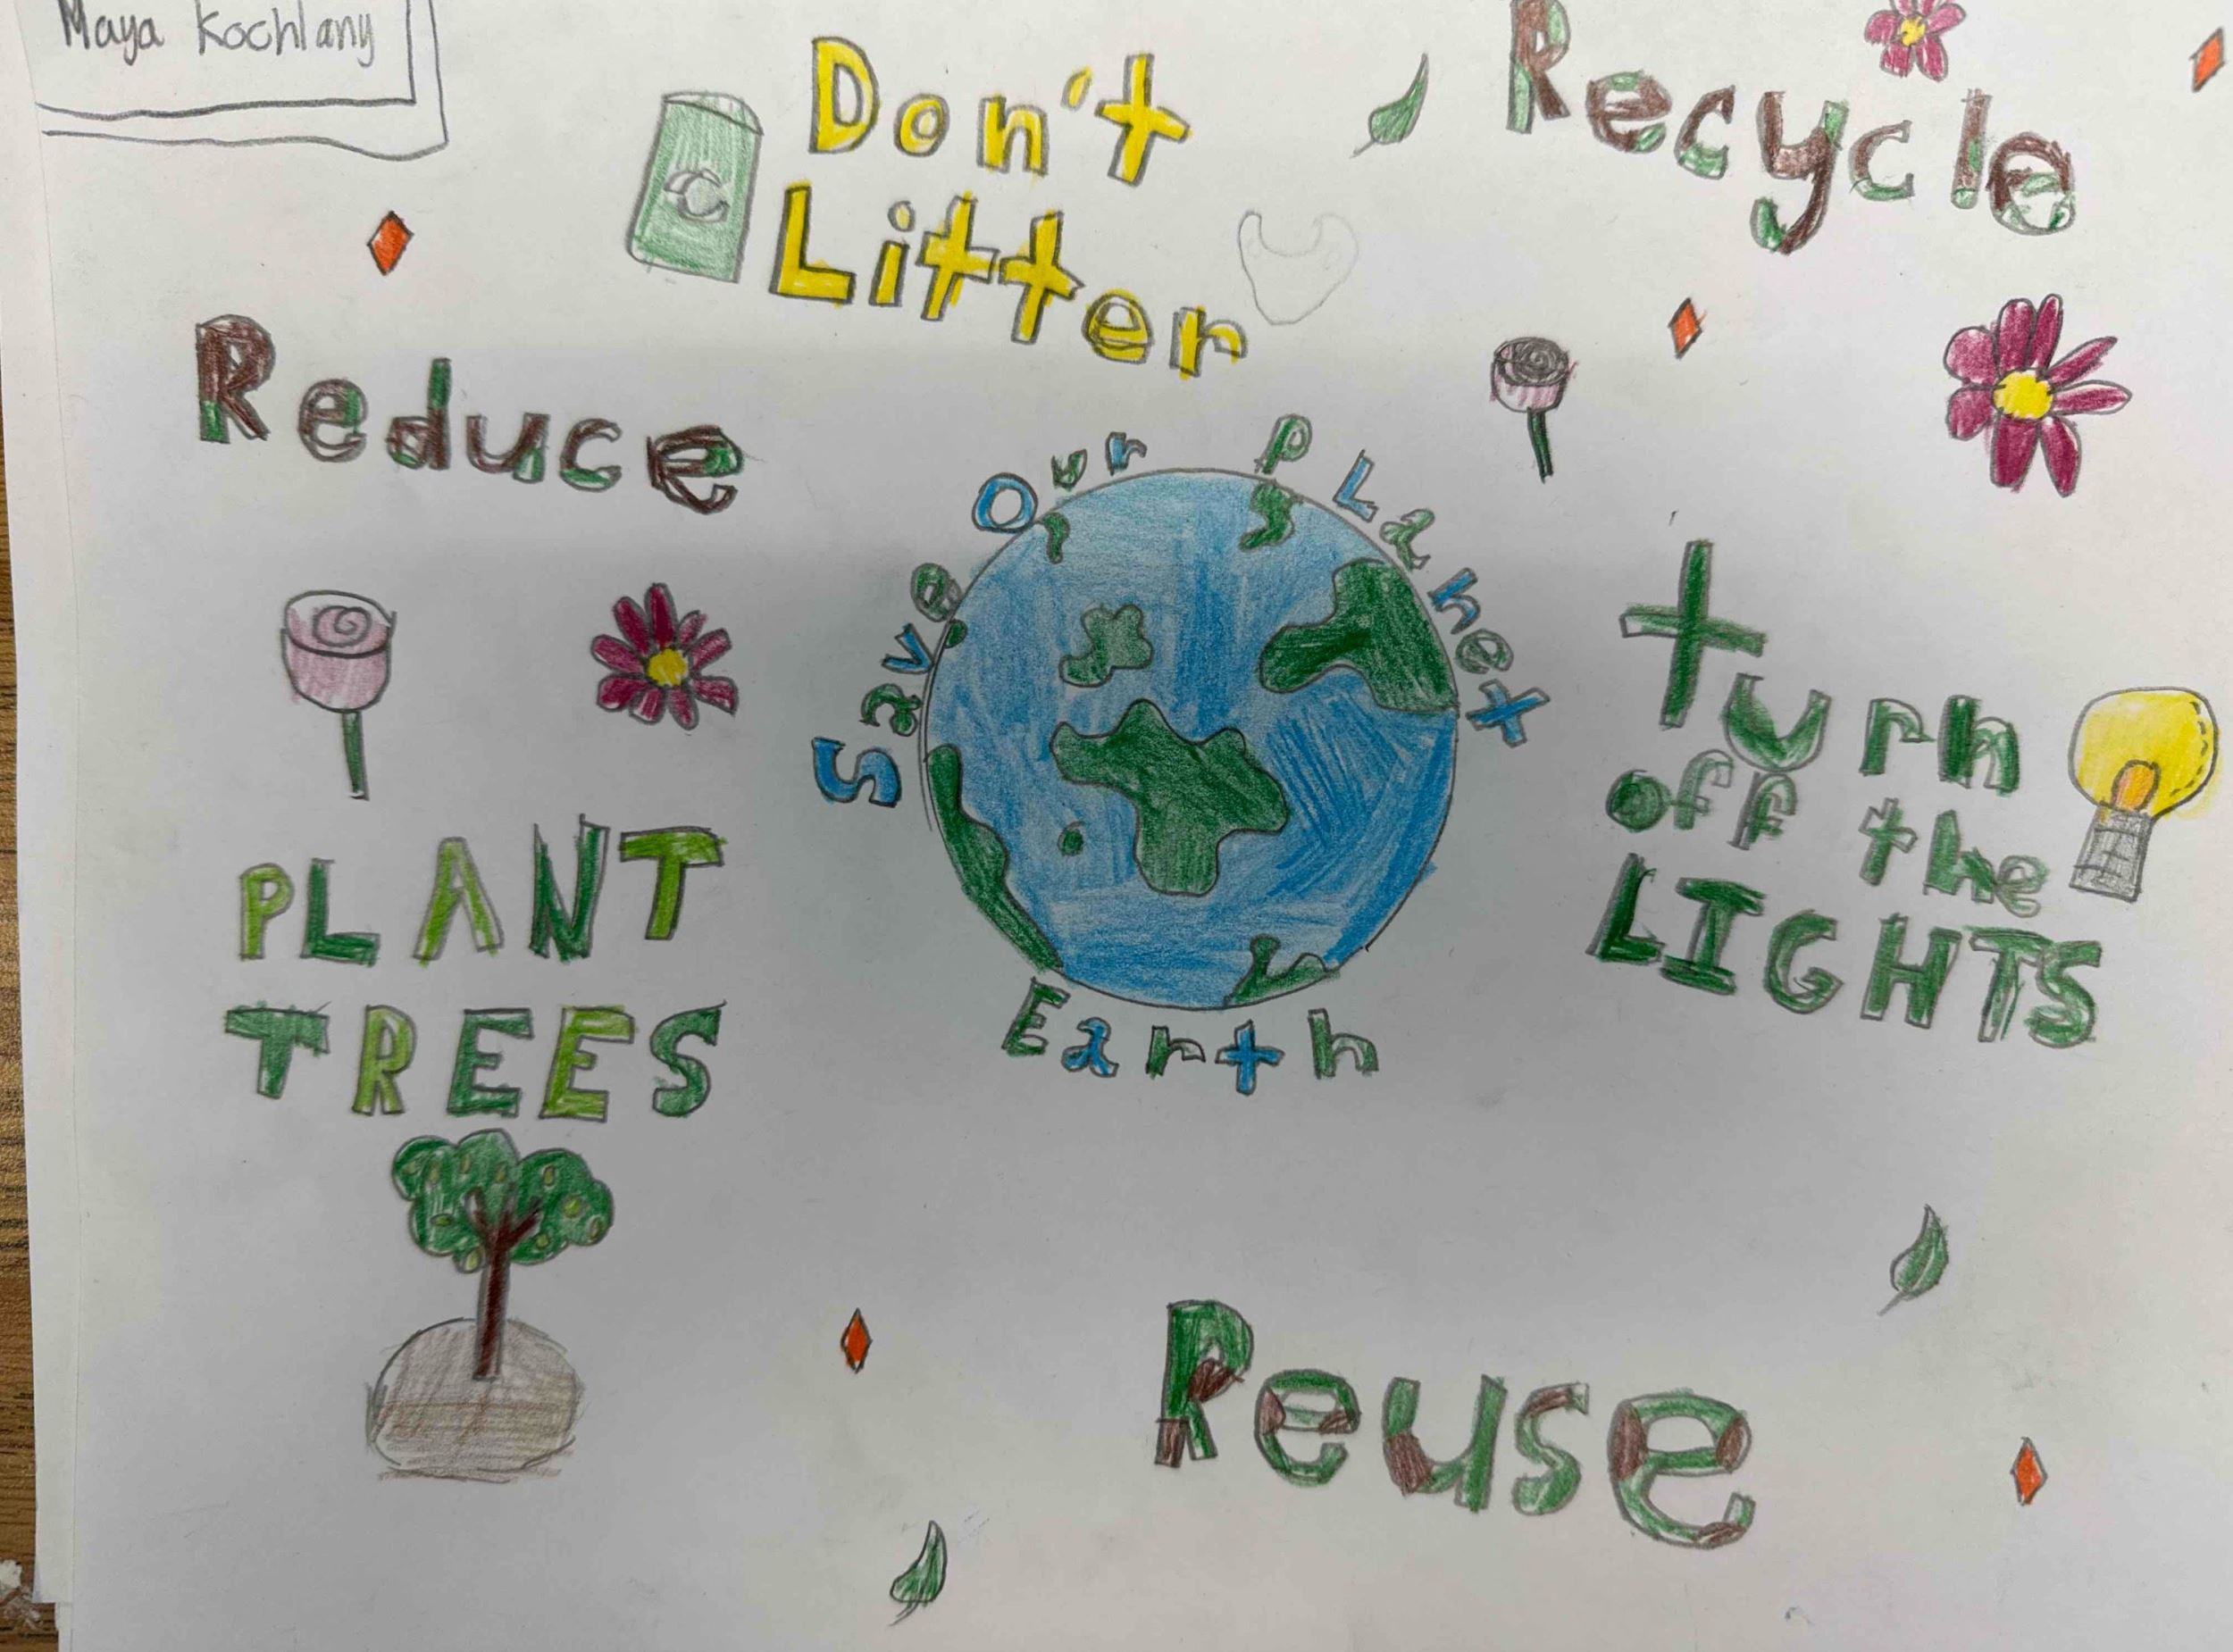 Maya Kochlany
Don't
Litter
Recycle
Reduce
Save Our PLanet
Earth
turn
off the
LIGHTS
PLANT
TREES
Reuse